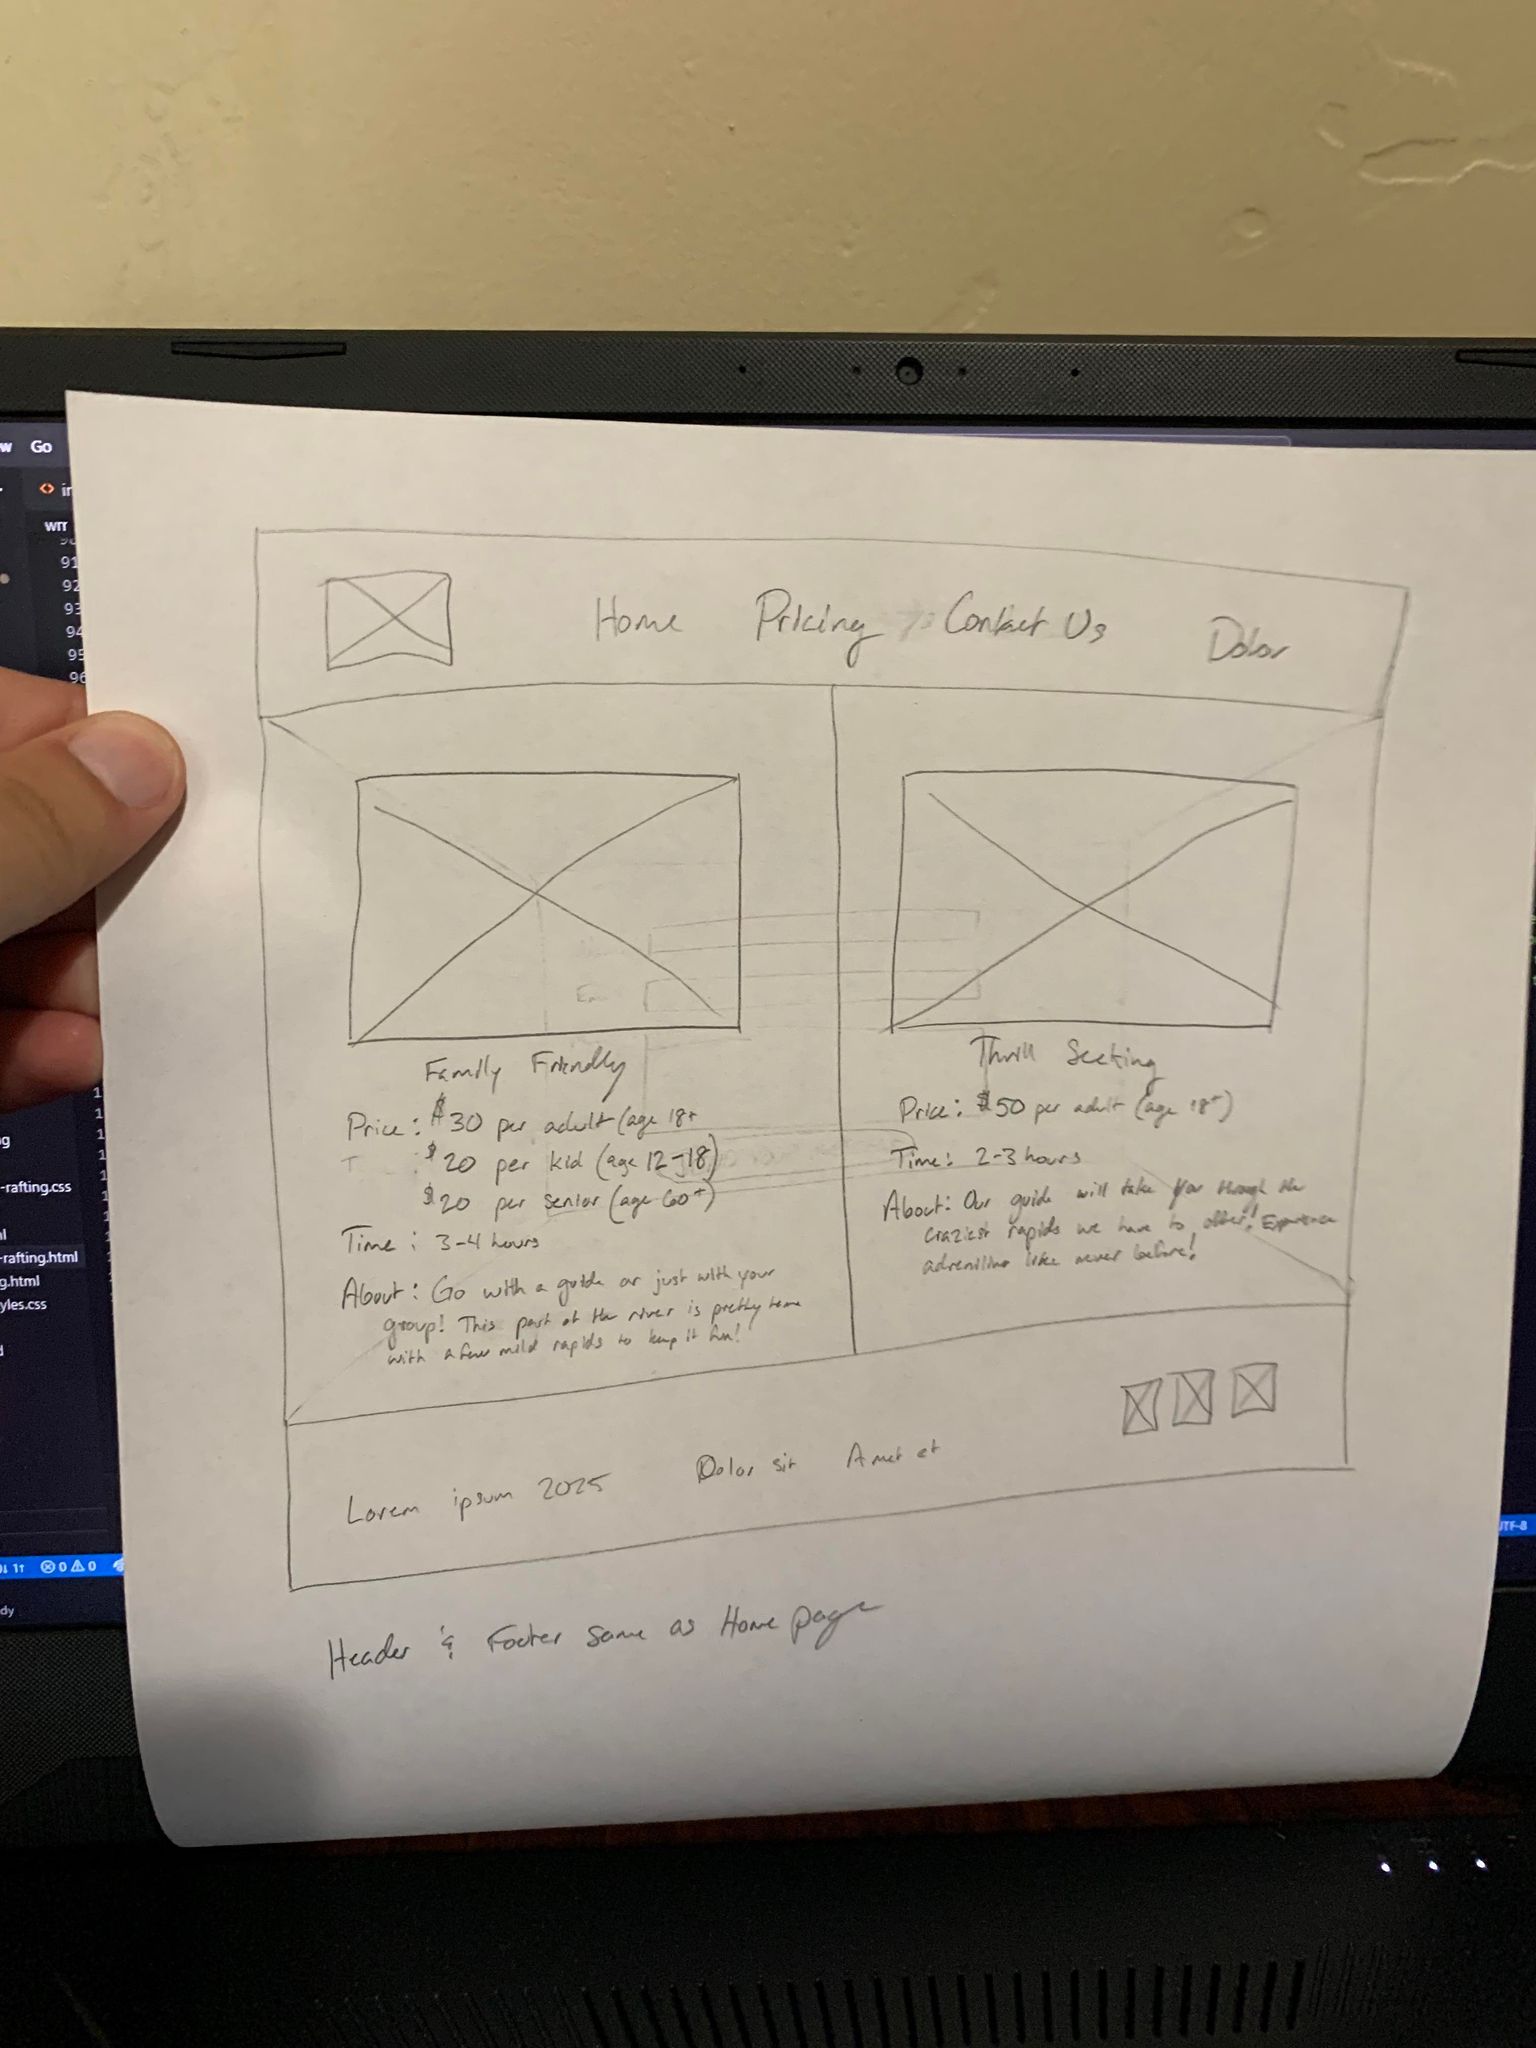 w Go
wrr
91
92
93
94
95
96
Home Pricing Contact Us Dolor
Family Friendly
Price: $30 per adult (age 18+
$20 per kid (age 12-18)
$20 per senior (age 60+)
Time: 3-4 hours
About: Go with a guide or just with your
group! This part of the river is pretty tame
with a few mild rapids to keep it fun!
Thrill Seeking
Price: $50 per adult (age 18+)
Time: 2-3 hours
About: Our guide will take you through the
craziest rapids we have to offer! Experience
adreniline like never before!
Lorem ipsum 2025 Dolor sit Amet et
Header & Footer same as Home page
-rafting.css
-rafting.html
g.html
yles.css
0 0
UTF-8
dy